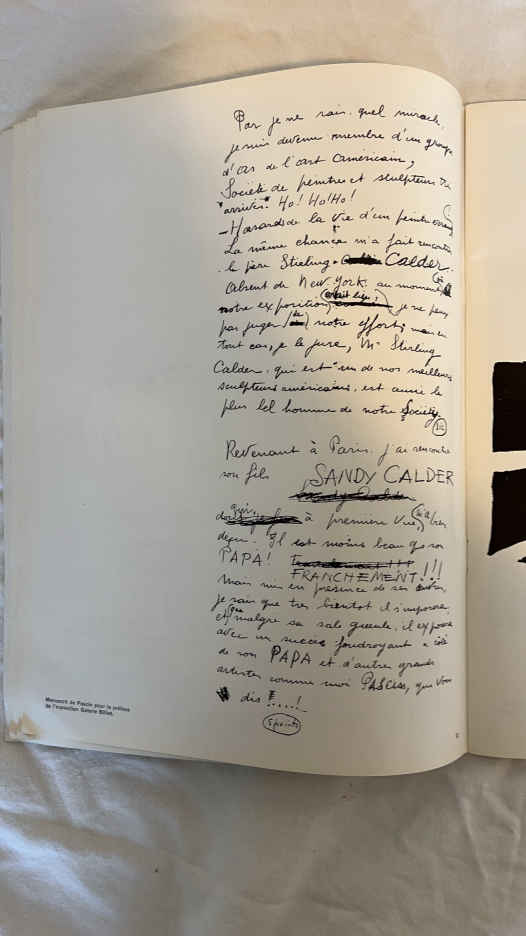 Par je ne sais quel miracle,
je suis devenu membre d'un groupe
d'as de l'art américain,
Société de peintres et sculpteurs très
"arrivés". Ho! Ho! Ho!
– Hasards de la vie d'un peintre errant
La même chance m'a fait rencontrer
le père Stirling CALDER.
Absent de New York au moment
notre exposition, je ne peux
pas juger notre effort, mais en
tout cas, je le jure, Mr Sterling
Calder, qui est un de nos meilleurs
sculpteurs américains, est aussi le
plus bel homme de notre Société.
Revenant à Paris j'ai rencontré
son fils SANDY CALDER
qui, à première vue, m'a bien
déçu. Il est moins beau que son
PAPA! FRANCHEMENT!!!
Mais mis en présence de ses
je sais que très bientôt il s'imposera,
et que malgré sa sale gueule, il exposera
avec un succès foudroyant à côté
de son PAPA et d'autres grands
artistes comme moi PASCIN, qui vous
le dis!.....!
5 points
Manuscrit de Pascin pour la préface
de l'exposition Galerie Billiet.